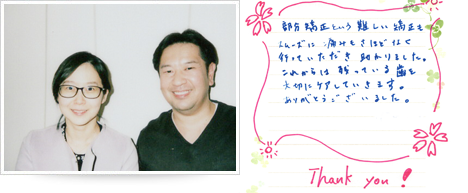 部分矯正という難しい矯正を
スムーズに痛みもさほどなく
行っていただき助かりました。
これからは残っている歯を
大切にケアしていきます。
ありがとうございました。
Thank you!